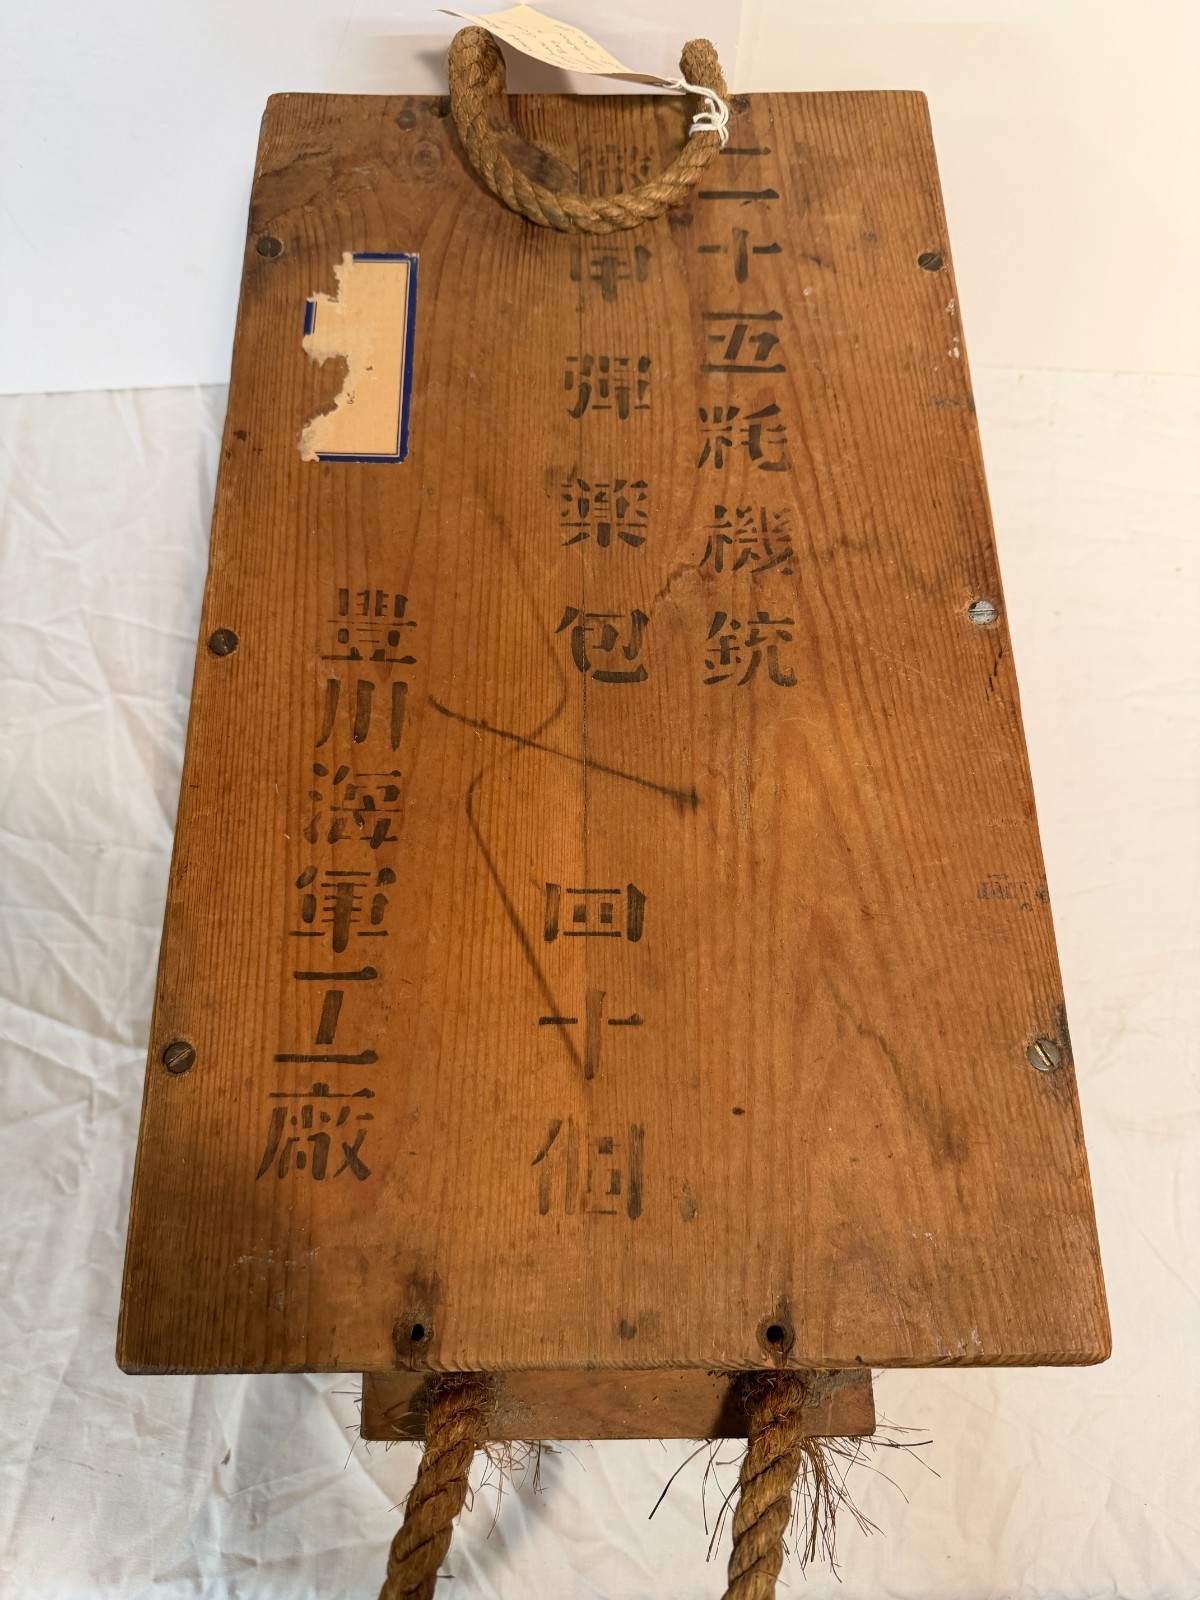 二十五粍機銃
徹甲彈藥包 四十個
豐川海軍工廠